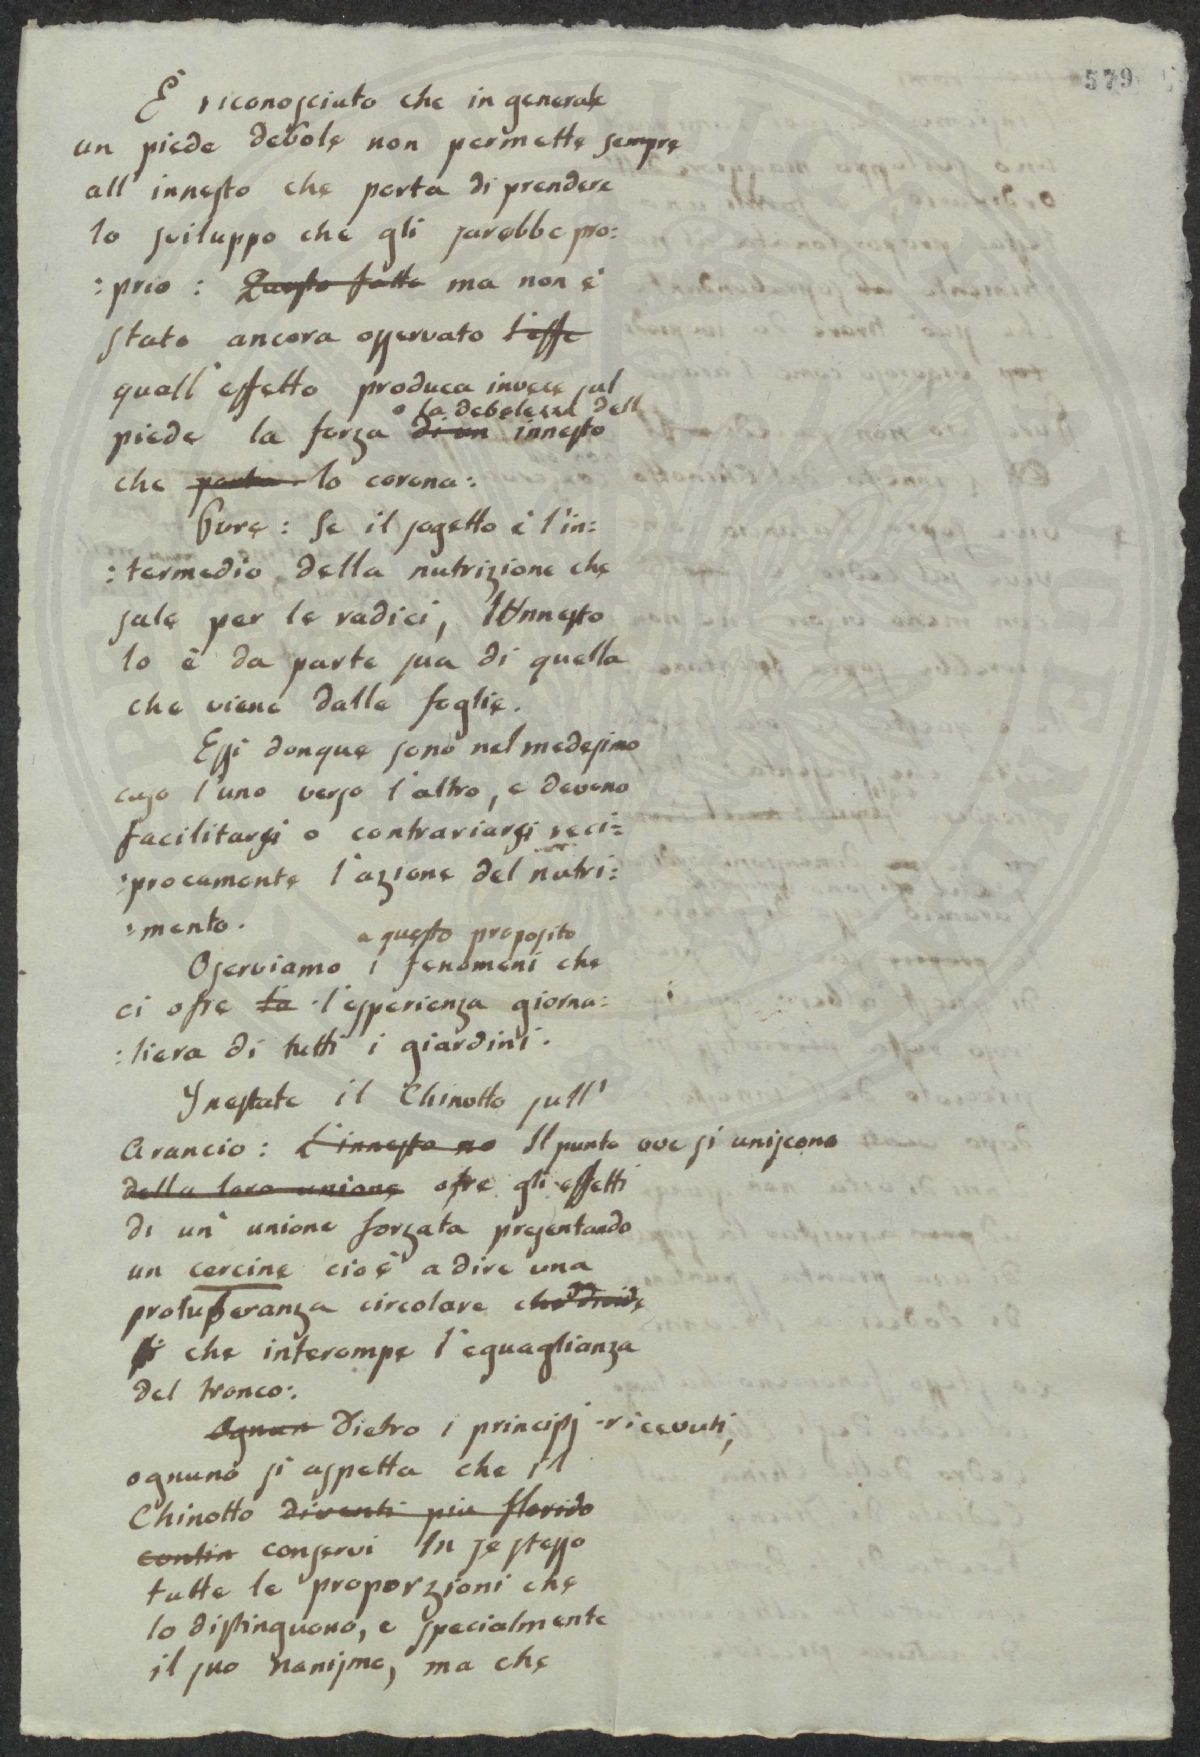 579
È riconosciuto che in generale
un piede debole non permette sempre
all' innesto che porta di prendere
lo sviluppo che gli sarebbe pro:
:prio : Questo fatto ma non è
stato ancora osservato l'effe
quall' effetto produca invece sul
o la debolezza dell
piede la forza di un innesto
che porta lo corona:
Pure : Se il sogetto è l'in:
:termedio della nutrizione che
sale per le radici, l'Innesto
lo è da parte sua di quella
che viene dalle foglie.
Essi donque sono nel medesimo
caso l'uno verso l'altro, e devono
facilitarsi o contrariarsi reci:
:procamente l'azione del nutri:
:mento.
a questo proposito
Oserviamo i fenomeni che
ci ofre la l'esperienza giorna:
:liera di tutti i giardini.
Inestate il Chinotto sull'
Arancio : L'innesto no Il punto ove si uniscono
della loro unione ofre gli effetti
di un' unione forzata presentando
un cercine cioè a dire una
protuberanza circolare che divide
che interompe l'eguaglianza
del tronco:
Ognun Dietro i principj ricevuti,
ognuno si aspetta che il
Chinotto diventi più florido
contin conservi In se stesso
tutte le proporzioni che
lo distinguono, e specialmente
il suo nanismo, ma che